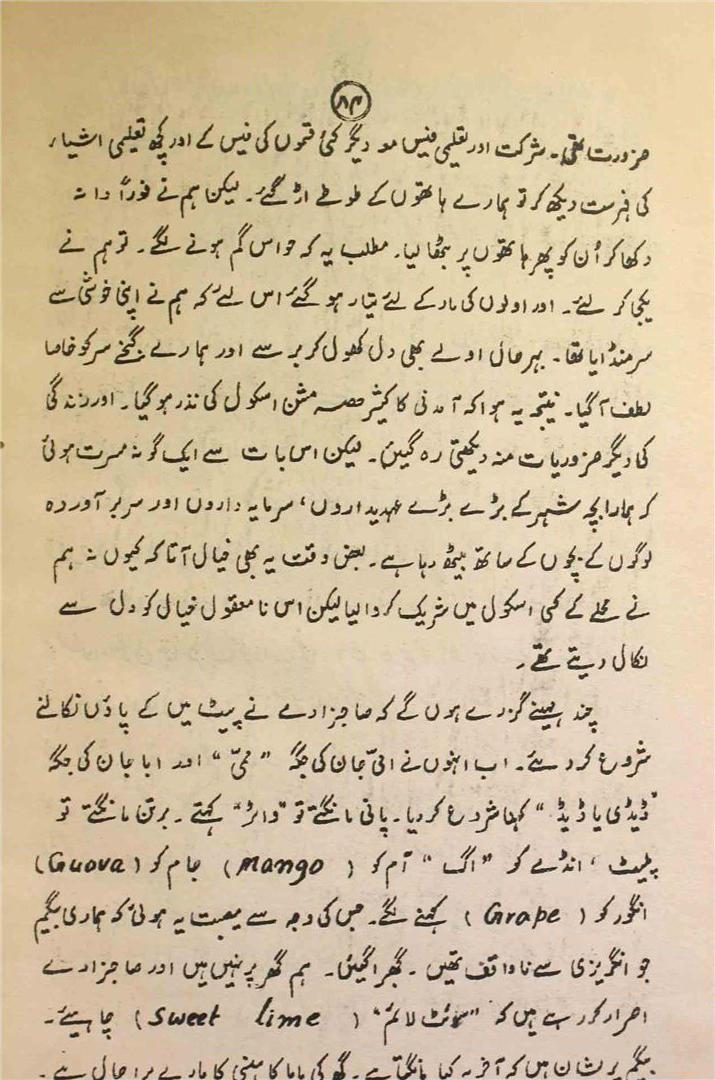 ۸۴
ضرورت تھی۔ شرکت اور تعلیمی فیس مو دیگر کئی قسموں کی فیس کے اور کچھ تعلیمی اشیاء
کی فہرست دیکھ کر تو ہمارے ہاتھوں کے طوطے اڑ گئے۔ لیکن ہم نے فوراً دانہ
دکھا کر اُن کو پھر ہاتھوں پر بٹھا لیا۔ مطلب یہ کہ حواس گم ہونے لگے۔ تو ہم نے
یکجا کر لئے۔ اور اولوں کی مار کے لئے تیار ہو گئے اس لئے کہ ہم نے اپنی خوشی سے
سر منڈایا تھا۔ بہرحال اولے بھی دل کھول کر برسے اور ہمارے گنجے سر کو خاصا
لطف آ گیا۔ نتیجہ یہ ہوا کہ آمدنی کا کثیر حصہ مشن اسکول کی نذر ہو گیا۔ اور زندگی
کی دیگر ضروریات منہ دیکھتی رہ گئیں۔ لیکن اس بات سے ایک گونہ مسرت ہوئی
کہ ہمارا بچہ شہر کے بڑے بڑے عہدیداروں، سرمایہ داروں اور سر بر آوردہ
لوگوں کے بچوں کے ساتھ بیٹھ رہا ہے۔ بعض وقت یہ بھی خیال آتا کہ کیوں نہ ہم
نے محلے کے کسی اسکول میں شریک کروا لیا لیکن اس نامعقول خیال کو دل سے
نکال دیتے تھے۔
چند مہینے گزرے ہوں گے کہ صاحبزادے نے پیٹ میں کے پاؤں نکالنے
شروع کر دئے۔ اب انہوں نے امّی جان کی جگہ "ممّی" اور ابا جان کی جگہ
"ڈیڈی یا ڈیڈ" کہنا شروع کر دیا۔ پانی مانگتے تو "واٹر" کہتے۔ برتن مانگتے تو
پلیٹ، انڈے کو "اگ" آم کو (Mango) جام کو (Guova)
انگور کو (Grape) کہنے لگے۔ جس کی وجہ سے مصیبت یہ ہوئی کہ ہماری بیگم
جو انگریزی سے ناواقف تھیں۔ گھبرا گئیں۔ ہم گھر پر نہیں ہیں اور صاحبزادے
اصرار کر رہے ہیں کہ "سوئٹ لائم" (Sweet lime) چاہیئے۔
بیگم پریشان ہیں کہ آخر یہ کیا مانگتا ہے۔ گھر کی ماما کا ہنسی کا مارے برا حال ہے۔